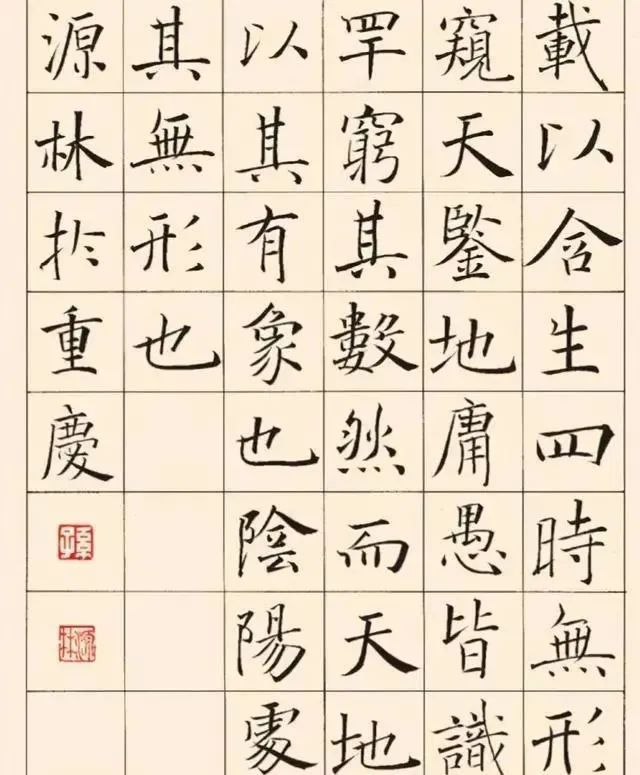 載以含生四時無形
窺天鑒地庸愚皆識
罕窮其數然而天地
以其有象也陰陽處
其無形也
源林於重慶
孫
源林